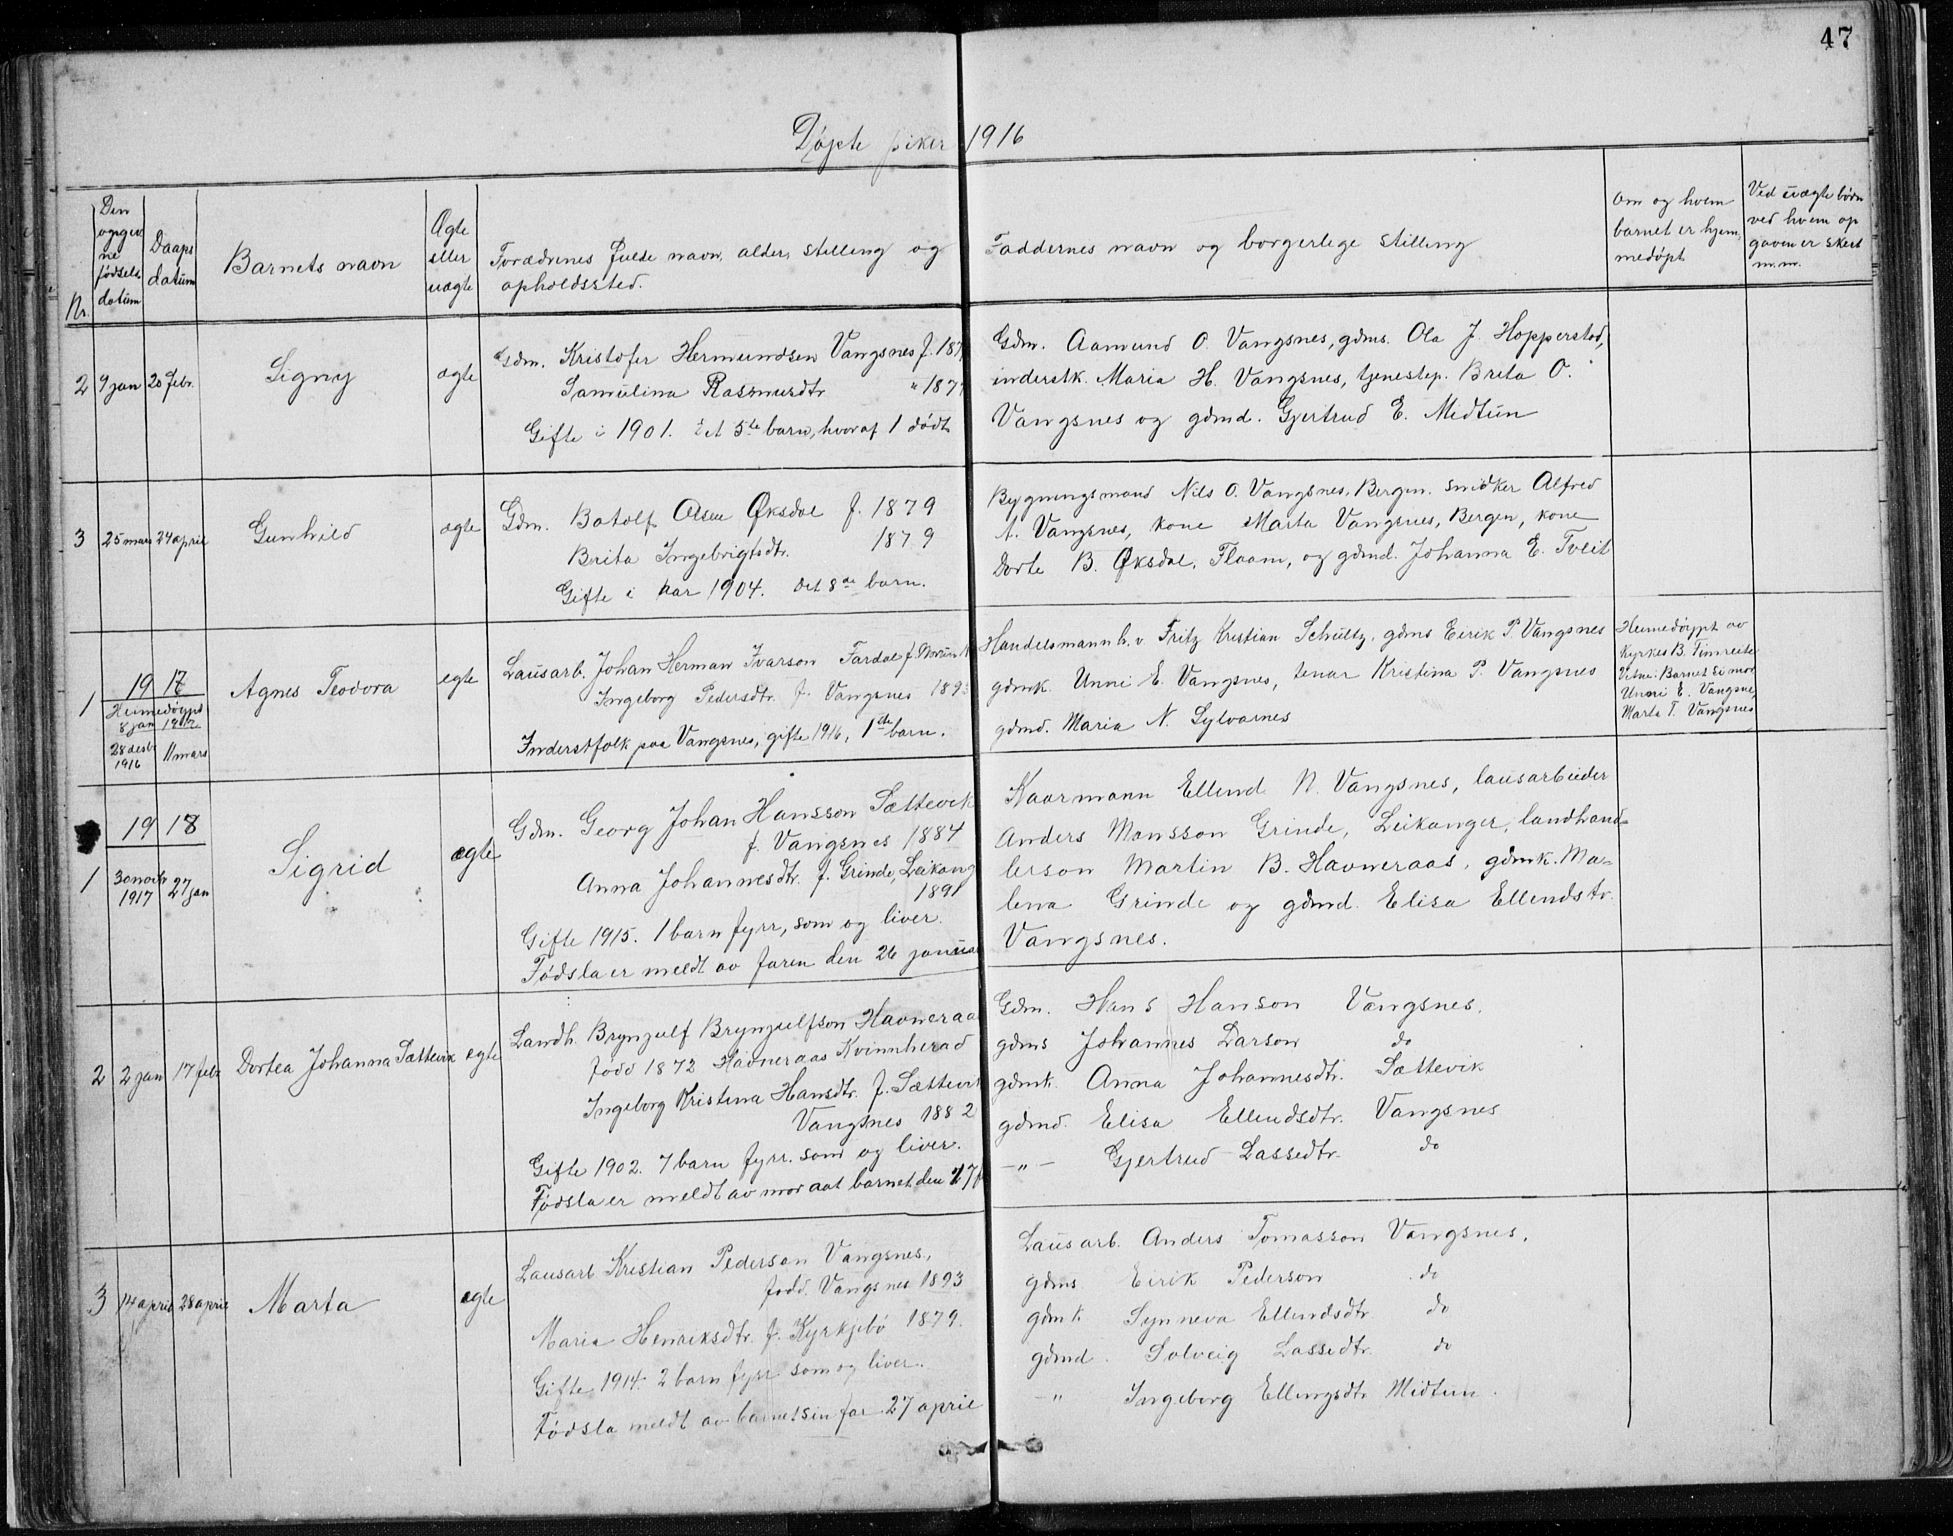 47
Døpte piker 1916
Nr.
Den opgivne fødsels datum
Daaps datum
Barnets navn
Ægte eller uægte
Forædrenes fulde navn, alder, stilling og opholdssted.
Faddernes navn og borgerlege stilling
Om og hvem barnet er hjemmedøpt
Ved uægte børn ved hvem opgaven er skert m.m.
2 9 jan 20 febr. Signy ægte
Gdm. Kristofer Hermundsen Vangsnes f. 187
Samulina Rasmusdtr. " 187
Gifte i 1901. Det 5te barn, hvoraf 1 dødt
Gdm. Aamund O. Vangsnes, gdms. Ola J. Hopperstad,
inderstk. Maria H. Vangsnes, tjenestep. Brita O.
Vangsnes og gdmd. Gjertrud E. Midtun
3 25 mars 24 april Gunhild ægte
Gdm. Botolf Olsen Øksdal f. 1879
Brita Ingebrigtsdtr. 1879
Gifte i aar 1904. Det 8de barn.
Bygningsmand Nils O. Vangsnes, Bergen. snidker Alfred
A. Vangsnes, kone Marta Vangsnes, Bergen, kone
Dorte B. Øksdal, Flaam, og gdmd. Johanna E. Tveit
1917
1 Heimedøypt 8 jan 1917
28 desbr 1916 11 mars Agnes Teodora egte
Lausarb. Johan Herman Ivarson Fardal f.
Ingeborg Pedersdtr. f. Vangsnes 1893
Inderstfolk paa Vangsnes, gifte 1916, 1ste barn.
Handelsmann h.v. Fritz Kristian Schultz, gdms Eirik P. Vangsnes
gdmk. Unni E. Vangsnes, tenar Kristina P. Vangsnes
gdmd. Maria N. Sylvarnes
Heimedøypt av
Kyrkes B. Timreite
Vitne: Barnet si mor
Unni E. Vangsnes
Marta T. Vangsnes
1918
1 30 novbr 1917 27 jan Sigrid ægte
Gdm. Georg Johan Hansson Sættevik
f. Vangsnes 1884
Anna Johannesdtr. f. Grinde, Leikang
1891
Gifte 1915. 1 barn fyrr, som og liver.
Fødsla er meldt av faren den 26 januar
Kaarmann Ellend N. Vangsnes, lausarbeider
Anders Monsson Grinde, Leikanger, landhand-
lerson Martin B. Havneraas, gdmk. Ma-
lena Grinde og gdmd. Elisa Ellendsdtr.
Vangsnes.
2 2 jan 17 febr Dortea Johanna Sættevik egte
Landh. Brynjulf Brynjulfson Havneraa
fødd 1872 Havneraas Kvinnherad
Ingeborg Kristina Hansdtr. f. Sættevik
Vangsnes 1882
Gifte 1902. 7 barn fyrr. som og liver.
Fødsla er meldt av mor aat barnet den 17 f
Gdm. Hans Hanson Vangsnes.
gdms Johannes Larson do
gdmk. Anna Johannesdtr. Sættevik
gdmd. Elisa Ellendsdtr. Vangsnes
- " - Gjertrud Lassedtr. do
3 14 april 28 april Marta egte
Lausarb Kristian Pederson Vangsnes,
fødd. Vangsnes 1893
Maria Henriksdtr. f. Kyrkjebø 1879.
Gifte 1914. 2 barn fyrr som og liver.
Fødsla meldt av barnet sin far 27 april
Lausarb. Anders Tomasson Vangsnes.
gdms Eirik Pederson do
gdmk Synneva Ellendsdtr do
gdmd. Solveig Lassedtr. do
" Ingeborg Ellingsdtr Midtun.